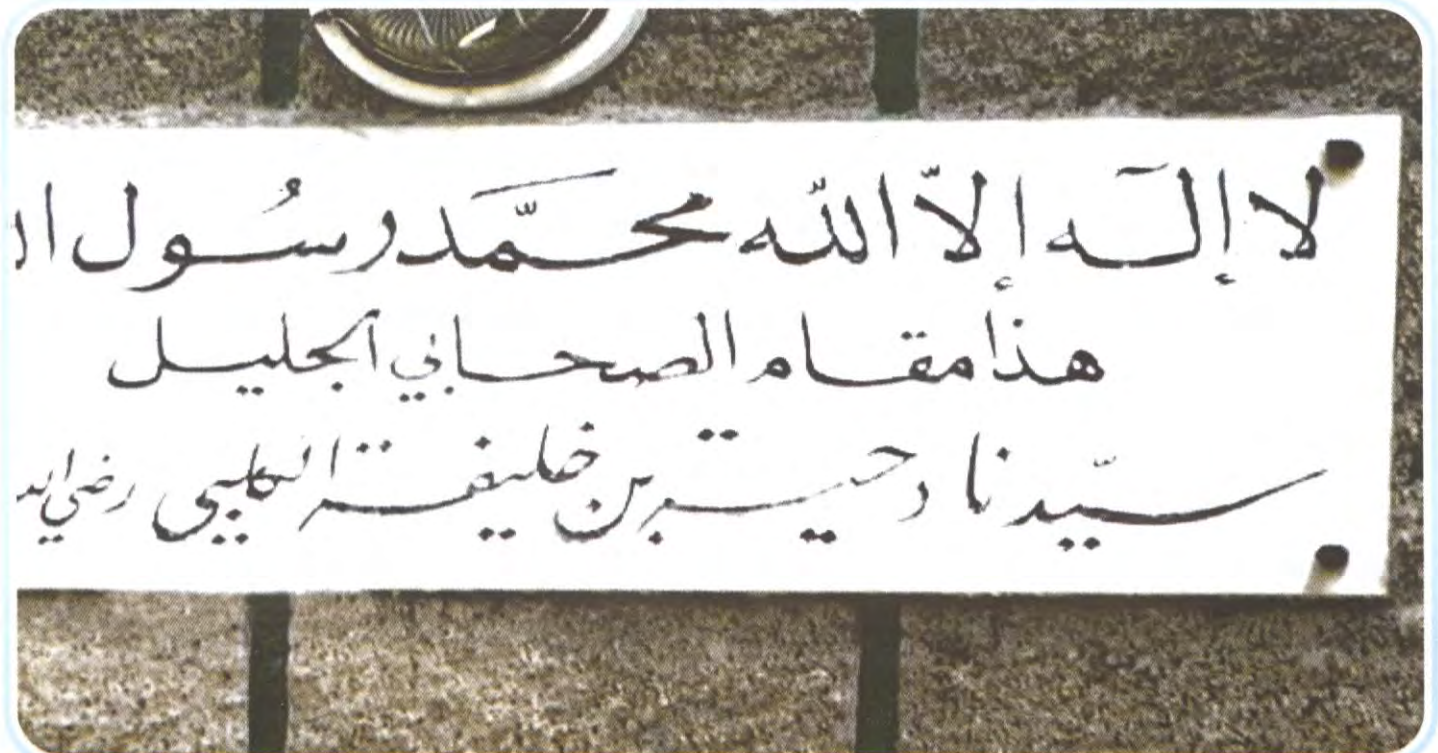 لا إلٓه إلّا اللّه محَمَّد رسُول ا
هذا مقام الصحابي الجليل
سيّدنا دحية بن خليفة الكلبي رضي